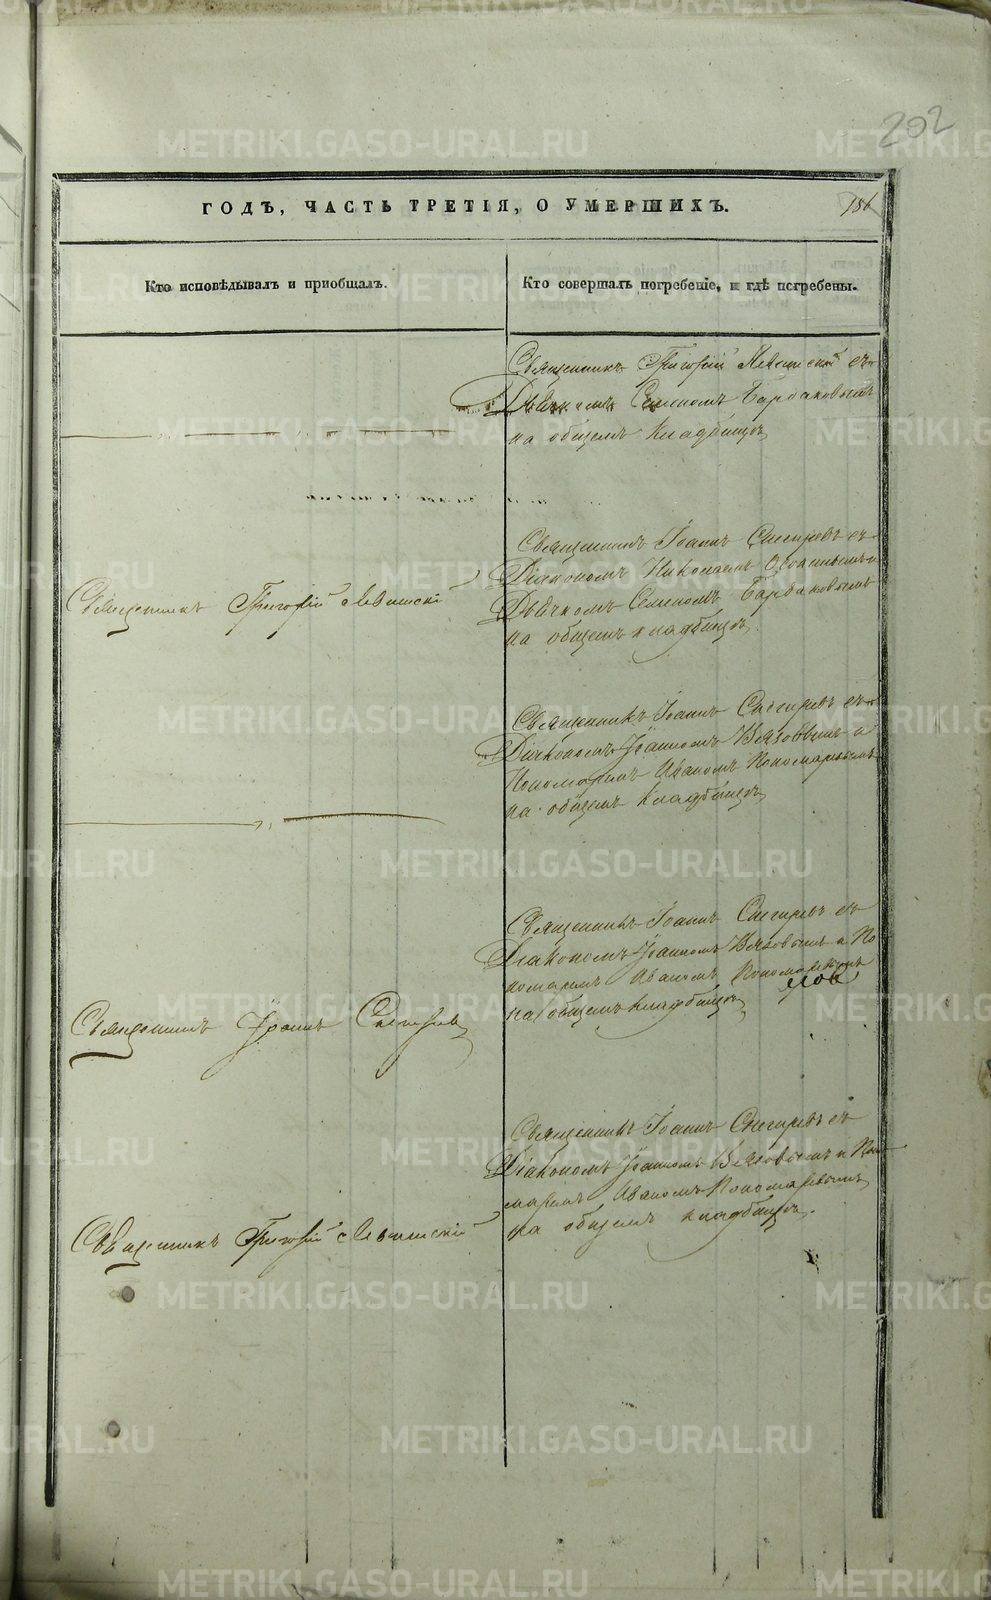 202
ГОДЪ, ЧАСТЬ ТРЕТІЯ, О УМЕРШИХЪ.
156
Кто исповѣдывалъ и приобщалъ.
Кто совершалъ погребеніе, и гдѣ погребены.
Священникъ Григорій Левитскій съ
Дьячкомъ Семеномъ Бардаковымъ
на общемъ кладбищѣ
Священникъ Григорій Левитскій
Священникъ Іоаннъ Снегиревъ съ
Діакономъ Николаемъ и
Дьячкомъ Семеномъ Бардаковымъ
на общемъ кладбищѣ.
Священникъ Іоаннъ Снегиревъ съ
Діакономъ Іоанномъ Вязовымъ и
Пономаремъ Иваномъ Пономаревымъ
на общемъ кладбищѣ
Священникъ Іоаннъ Снегиревъ
Священникъ Іоаннъ Снегиревъ съ
Діакономъ Іоанномъ Вязовымъ и По
номаремъ Иваномъ Пономаревымъ
на общемъ кладбищѣ
Священникъ Григорій Левитскій
Священникъ Іоаннъ Снегиревъ съ
Діакономъ Іоанномъ Вязовымъ и Поно
маремъ Иваномъ Пономаревымъ
на общемъ кладбищѣ.
METRIKI.GASO-URAL.RU